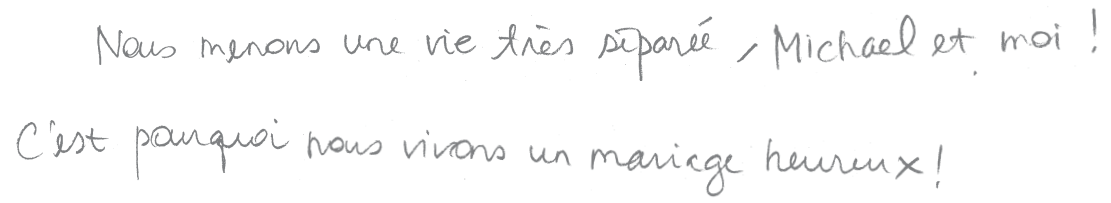 Nous menons une vie très séparée, Michael et moi !
C'est pourquoi nous vivons un mariage heureux !